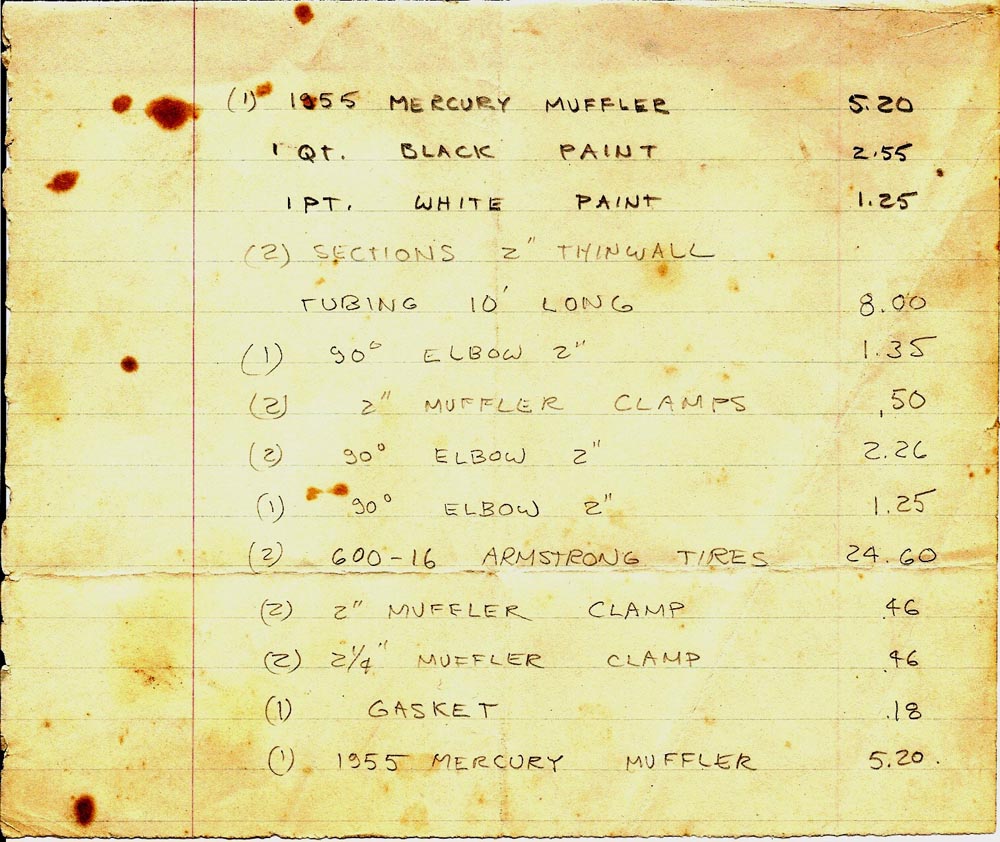 (1) 1955 MERCURY MUFFLER 5.20
1 QT. BLACK PAINT 2.55
1 PT. WHITE PAINT 1.25
(2) SECTIONS 2" THINWALL
TUBING 10' LONG 8.00
(1) 90° ELBOW 2" 1.35
(2) 2" MUFFLER CLAMPS .50
(2) 90° ELBOW 2" 2.26
(1) 90° ELBOW 2" 1.25
(2) 600-16 ARMSTRONG TIRES 24.60
(2) 2" MUFFLER CLAMP .46
(2) 2 1/4" MUFFLER CLAMP .46
(1) GASKET .18
(1) 1955 MERCURY MUFFLER 5.20.